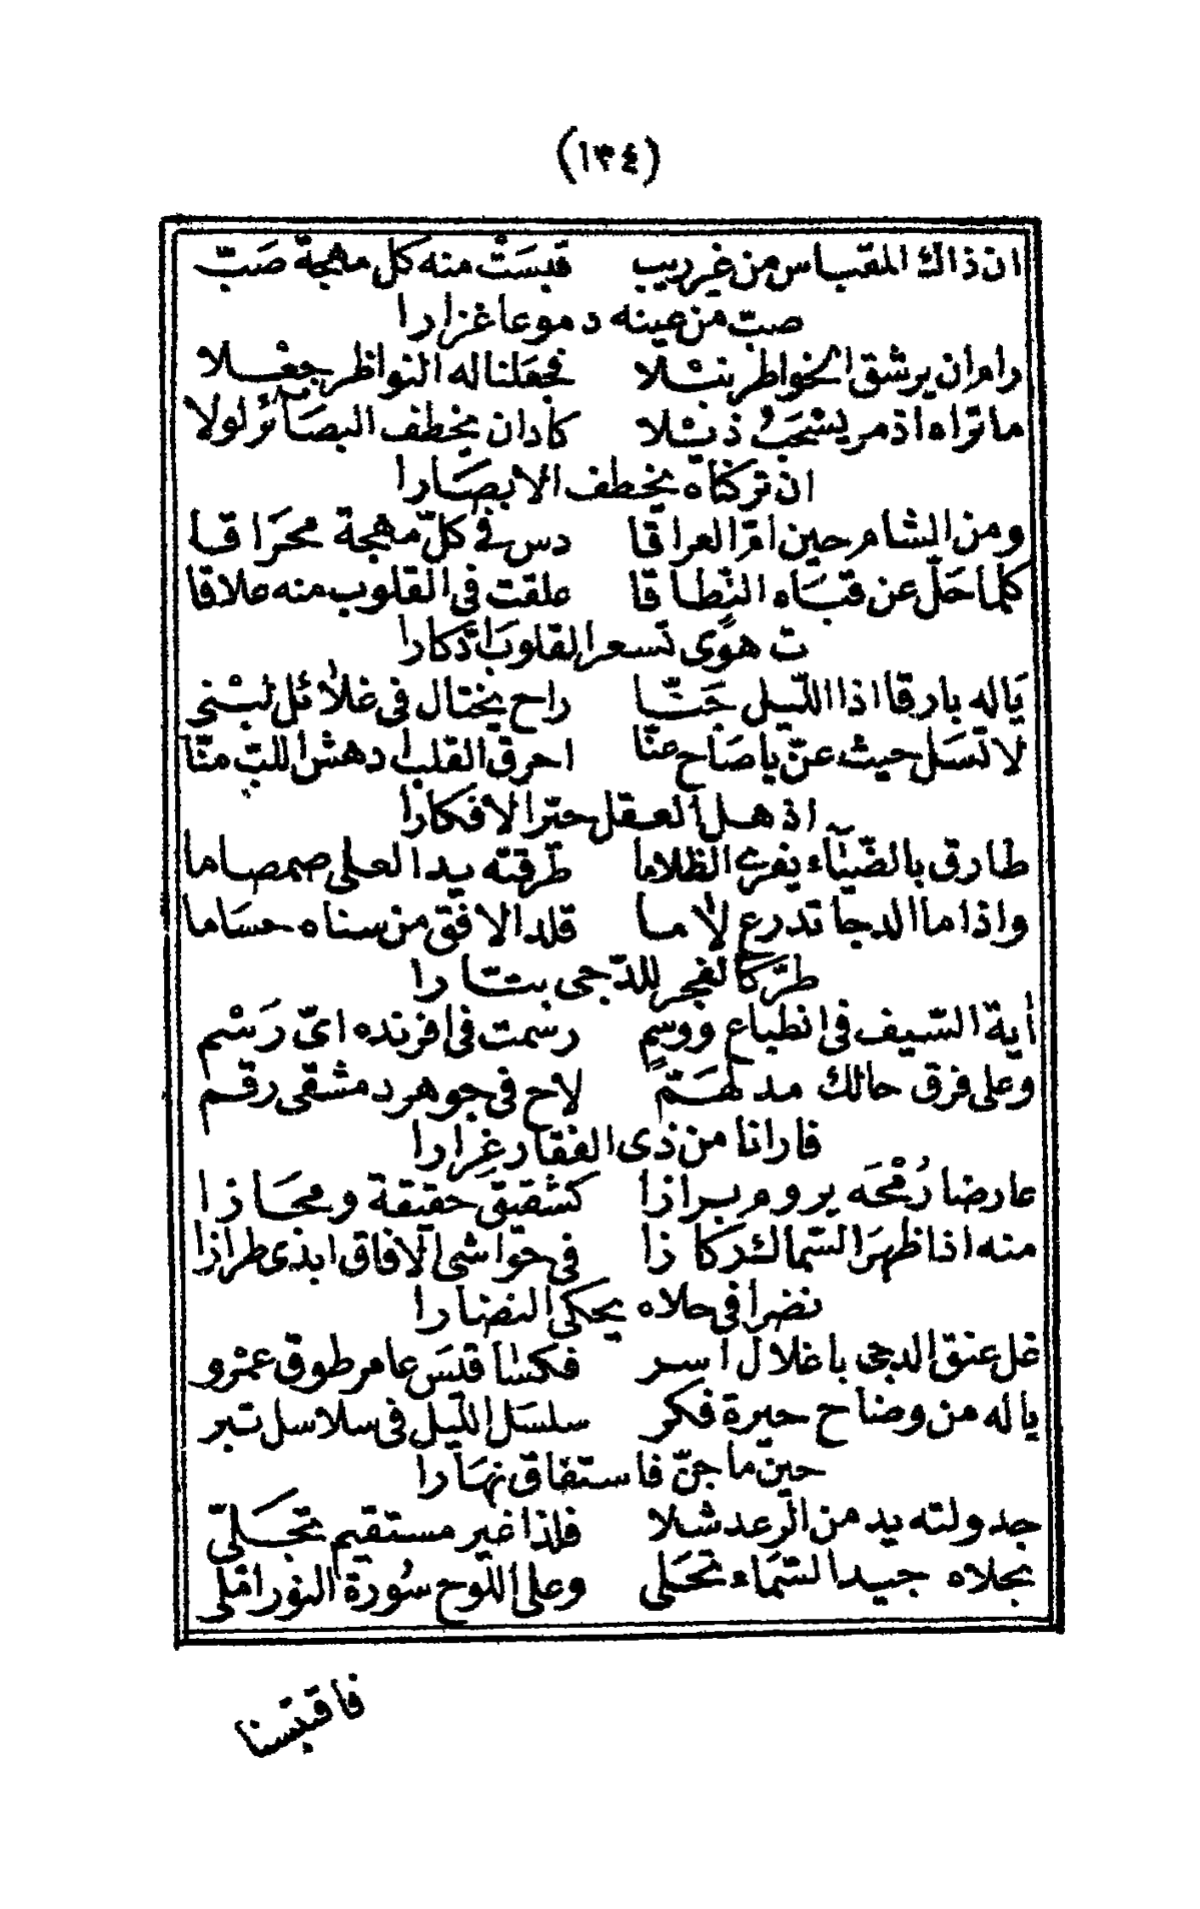 (١٣٤)
ان ذاك المقباس من غير ريب قبست منه كل مهجة صبّ
صبّ من عينه دموعا غزارا
رام ان يرشق الخواطر نبْلا فجعلنا له النواظر جعْلا
ما تراه اذ مر يسْحَبُ ذيْلا كاد ان يخطف البصآئر لولا
ان تركناه يخطف الابصَارا
ومن الشام حين امّ العراقا دس في كلّ مهجة محرَاقا
كلما حَلّ عن قبَاه النّطاقا علقت في القلوب منه علاقا
ت هوًى تسعر القلوبَ ادّكارا
يَاله بارقا اذا اللّيل جَنّا راح يختال في غلائل لبْنى
لا تسَل حيث عنّ يا صَاح عنّا احرق القلبَ ادهش اللبّ منّا
اذهل العقل حيّر الافكارا
طارق بالضّيآء يفرى الظلاما طرّقته يد العلى صمصاما
واذا ما الدجا تدرع لاما قلد الافق من سناه حسَاما
طرّ كالفجر للدّجى بتّارا
أية السّيف في انطباع ووسمٍ رسمت في افرنده ايّ رَسْم
وعلى فرق حالك مدلهَمّ لاح في جوهر دمشقى رقم
فارانا من ذى الفقار غِرارا
عارضا رُمْحَه يروم برازا كشقيق حقيقة ومجَازا
منه اذا ظهرَ السّماك ركازا في حوَاشى الآفاق ابدى طرازا
نضرا في حلاه يحكى النضارا
غل عنق الدجى باغلال اسر فكسَا قيَس عامر طوق عمْرو
ياله من وضاح حيرة فكر سلسَل اللّيل في سلاسل تبر
حين ما جنّ فاستفاق نهَارا
جدولته يد من الّرعد شلا فلذا غير مستقيم تجَلّى
بحلاه جيد السّمَاء تحَلى وعلى اللّوح سُورة النور املى
فاقبَسنا